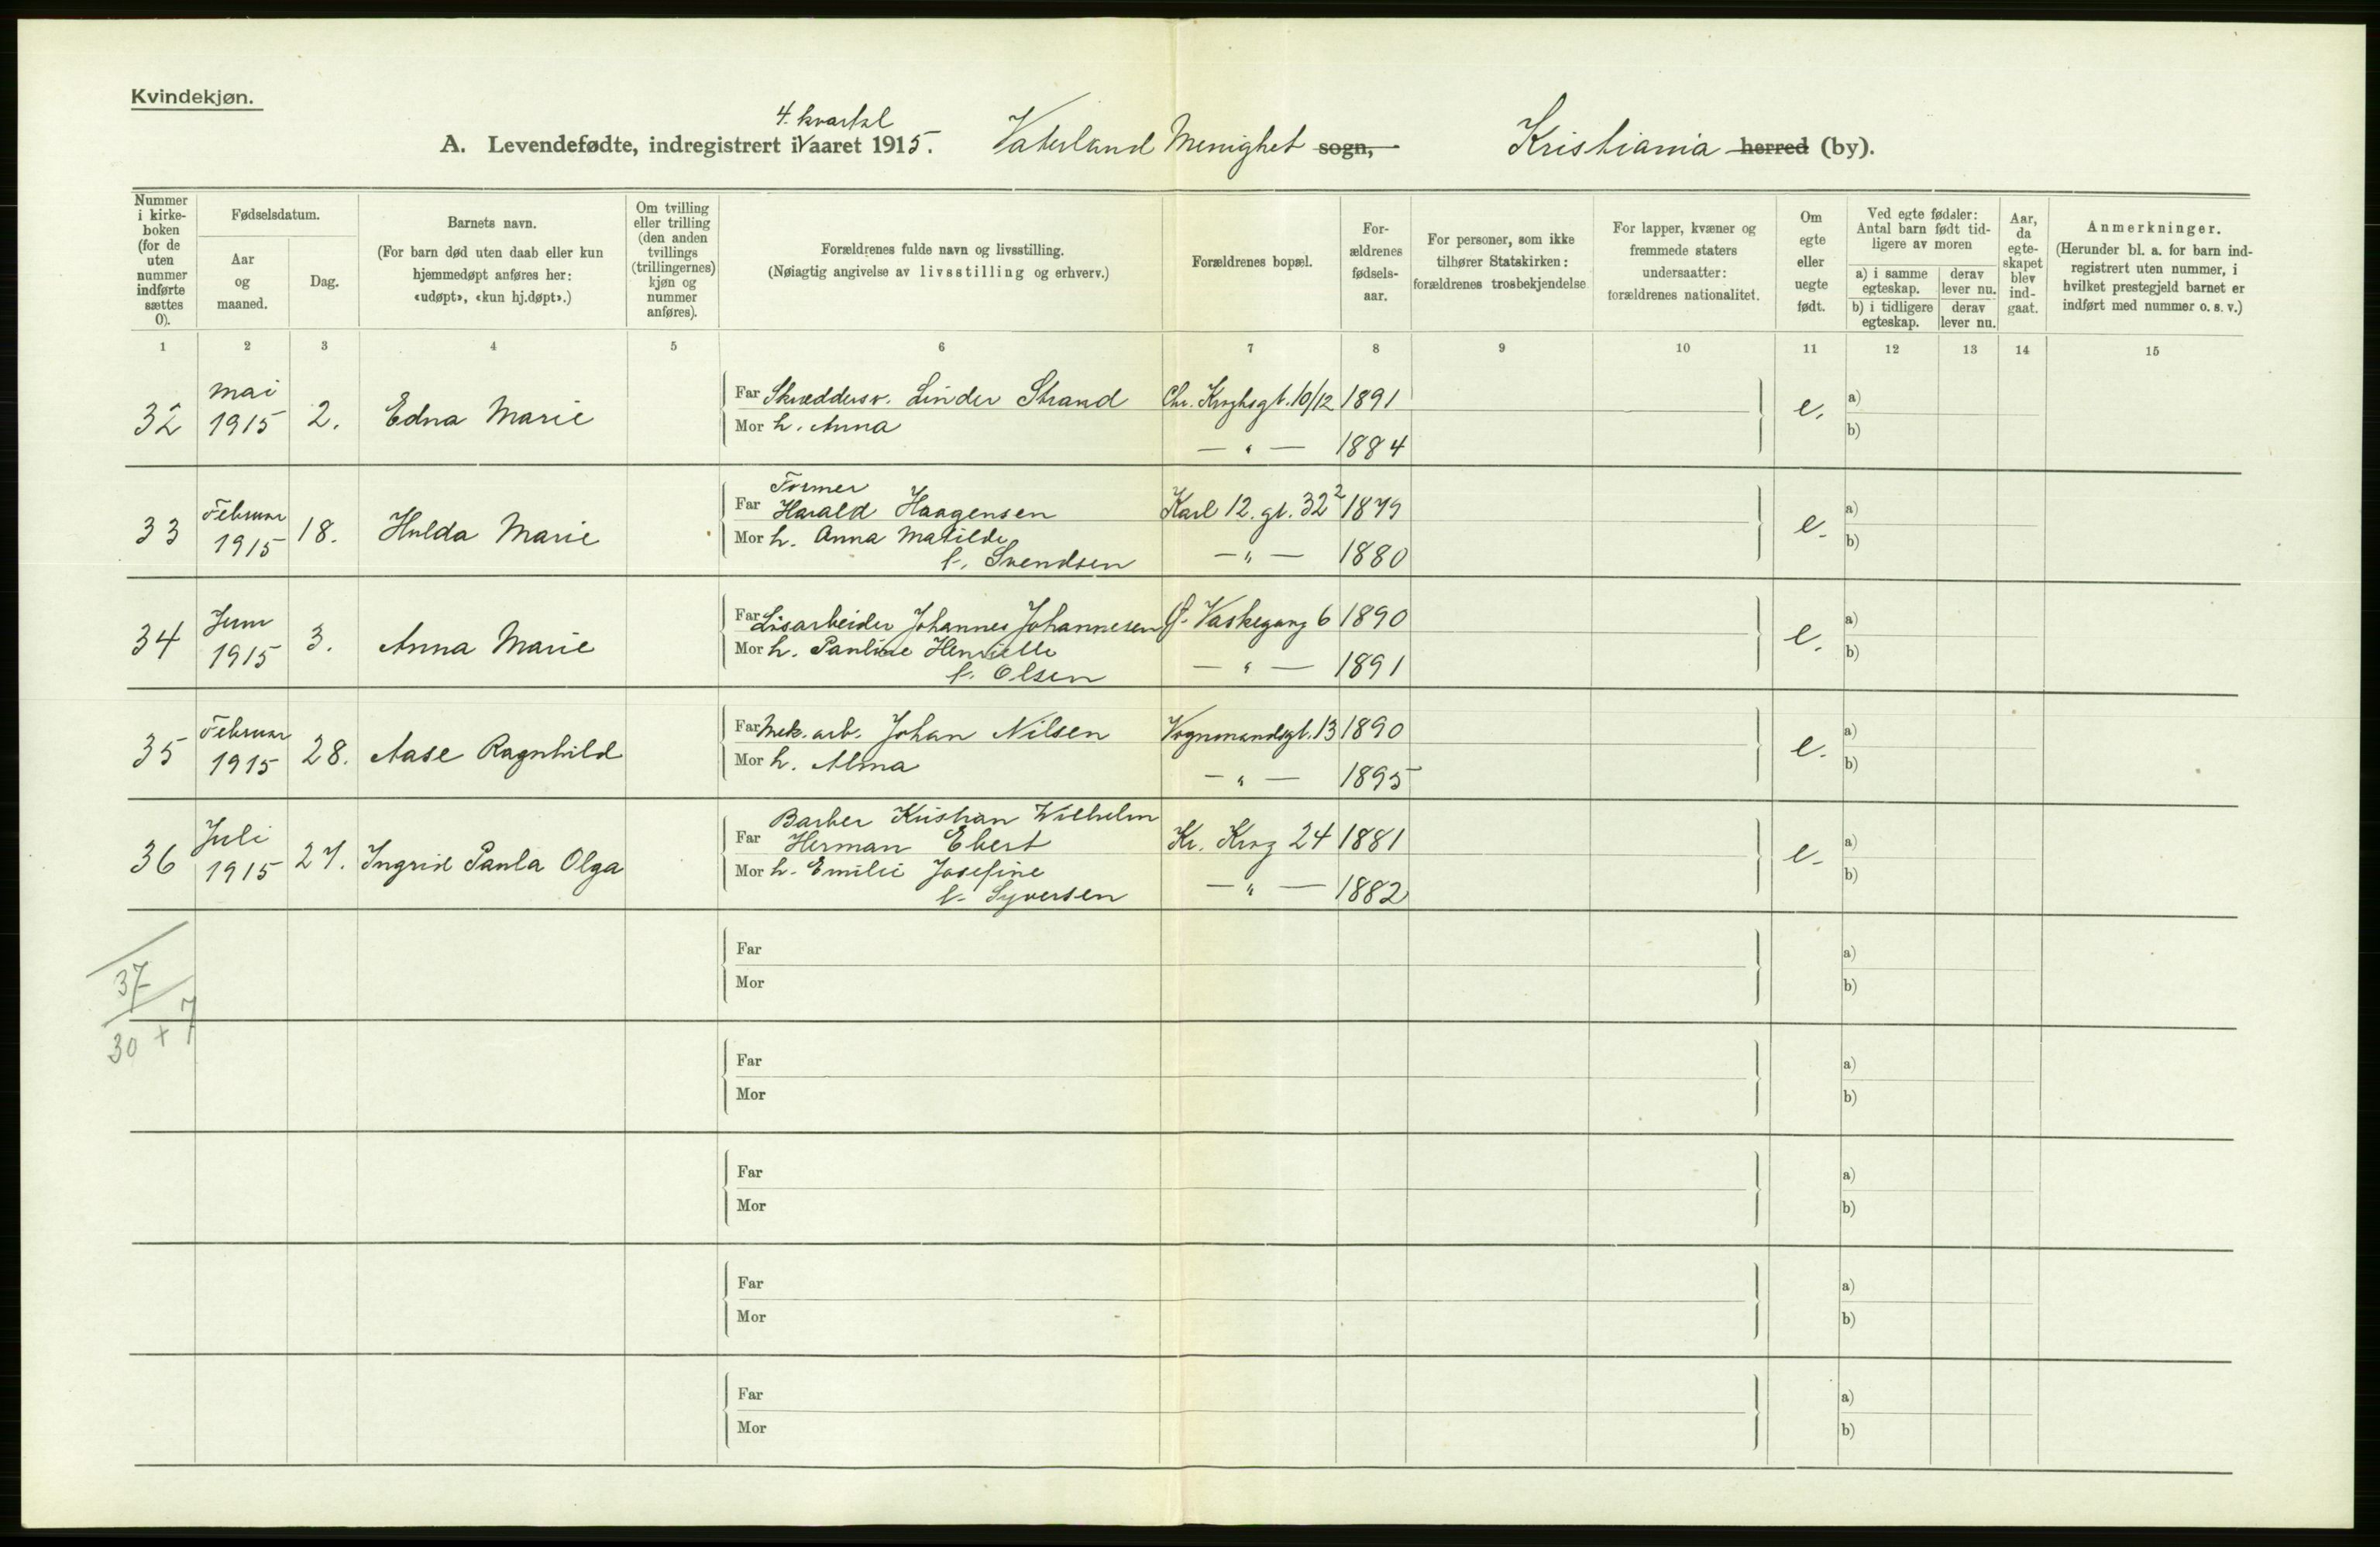 Kvindekjøn.
4. kvartal
A. Levendefødte, indregistrert i aaret 1915. Vaterland Menighet sogn, Kristiania herred (by).
Nummer i kirkeboken (for de uten nummer indførte sættes 0).
Fødselsdatum.
Aar og maaned.
Dag.
Barnets navn.
(For barn død uten daab eller kun hjemmedøpt anføres her: «udøpt», «kun hj.døpt».)
Om tvilling eller trilling (den anden tvillings (trillingernes) kjøn og nummer anføres).
Forældrenes fulde navn og livsstilling.
(Nøiagtig angivelse av livsstilling og erhverv.)
Forældrenes bopæl.
Forældrenes fødselsaar.
For personer, som ikke tilhører Statskirken: forældrenes trosbekjendelse
For lapper, kvæner og fremmede staters undersaatter: forældrenes nationalitet.
Om egte eller uegte født.
Ved egte fødsler: Antal barn født tidligere av moren
a) i samme egteskap.
derav lever nu.
b) i tidligere egteskap.
derav lever nu.
Aar, da egteskapet blev indgaat.
Anmerkninger.
(Herunder bl. a. for barn indregistrert uten nummer, i hvilket prestegjeld barnet er indført med nummer o. s. v.)
1 2 3 4 5 6 7 8 9 10 11 12 13 14 15
32 Mai 1915 2. Edna Marie
Far Skræddersv. Linder Strand Chr. Kroghsgt. 10/12 1891 e. a)
Mor h. Anna — " — 1884 b)
33 Februar 1915 18. Hulda Marie
Former
Far Harald Haagensen Karl 12. gt. 32² 1879 e. a)
Mor h. Anna Matilde
f. Svendsen — " — 1880 b)
34 Juni 1915 3. Anna Marie
Far Løsarbeider Johannes Johannesen Ø. Vaskegang 6 1890 e. a)
Mor h. Pauline
f. Olsen — " — 1891 b)
35 Februar 1915 28. Aase Ragnhild
Far Mek. arb. Johan Nilsen Vognmandsgt. 13 1890 e. a)
Mor h. Alma — " — 1895 b)
36 Juli 1915 27. Ingrid Paula Olga
Barber Kristian Wilhelm
Far Herman Ebert Kr. Krog 24 1881 e. a)
Mor h. Emilie Josefine
f. Syversen — " — 1882 b)
37
30 + 7
Far a)
Mor b)
Far a)
Mor b)
Far a)
Mor b)
Far a)
Mor b)
Far a)
Mor b)